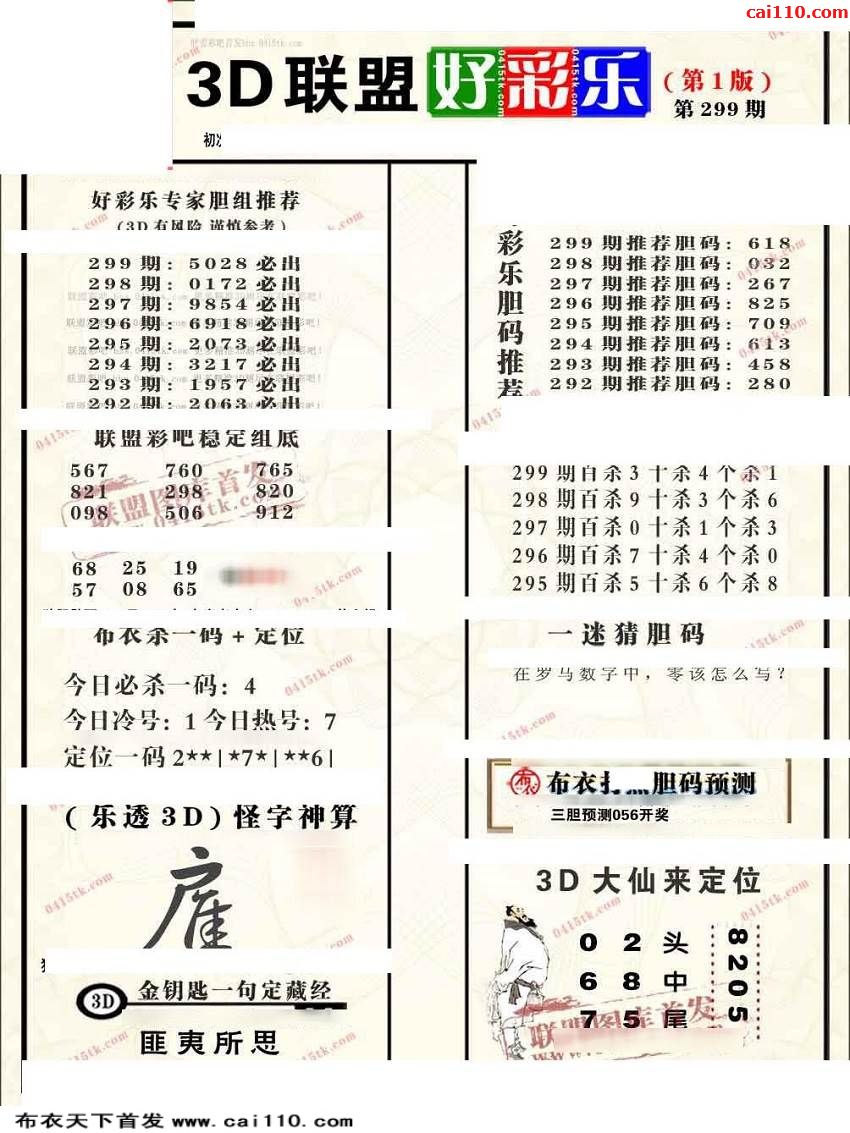 cai110.com
3D联盟好彩乐(第1版)
第299期
好彩乐专家胆组推荐
(3D有风险 谨慎参考)
299期: 5028必出
298期: 0172必出
297期: 9854必出
296期: 6918必出
295期: 2073必出
294期: 3217必出
293期: 1957必出
292期: 2063必出
联盟彩吧稳定组底
567 760 765
821 298 820
098 506 912
68 25 19
57 08 65
布衣杀一码+定位
今日必杀一码: 4
今日冷号: 1 今日热号: 7
定位一码 2**|*7*|**6|
(乐透3D)怪字神算
3D 金钥匙一句定藏经
匪夷所思
彩乐胆码推荐
299期推荐胆码: 618
298期推荐胆码: 032
297期推荐胆码: 267
296期推荐胆码: 825
295期推荐胆码: 709
294期推荐胆码: 613
293期推荐胆码: 458
292期推荐胆码: 280
299期百杀3十杀4个杀1
298期百杀9十杀3个杀6
297期百杀0十杀1个杀3
296期百杀7十杀4个杀0
295期百杀5十杀6个杀8
一迷猜胆码
在罗马数字中，零该怎么写?
布衣 胆码预测
三胆预测056开奖
3D大仙来定位
0 2 头
6 8 中
7 5 尾
8205
联盟图库首发
0415tk.com
布衣天下首发 www.cai110.com